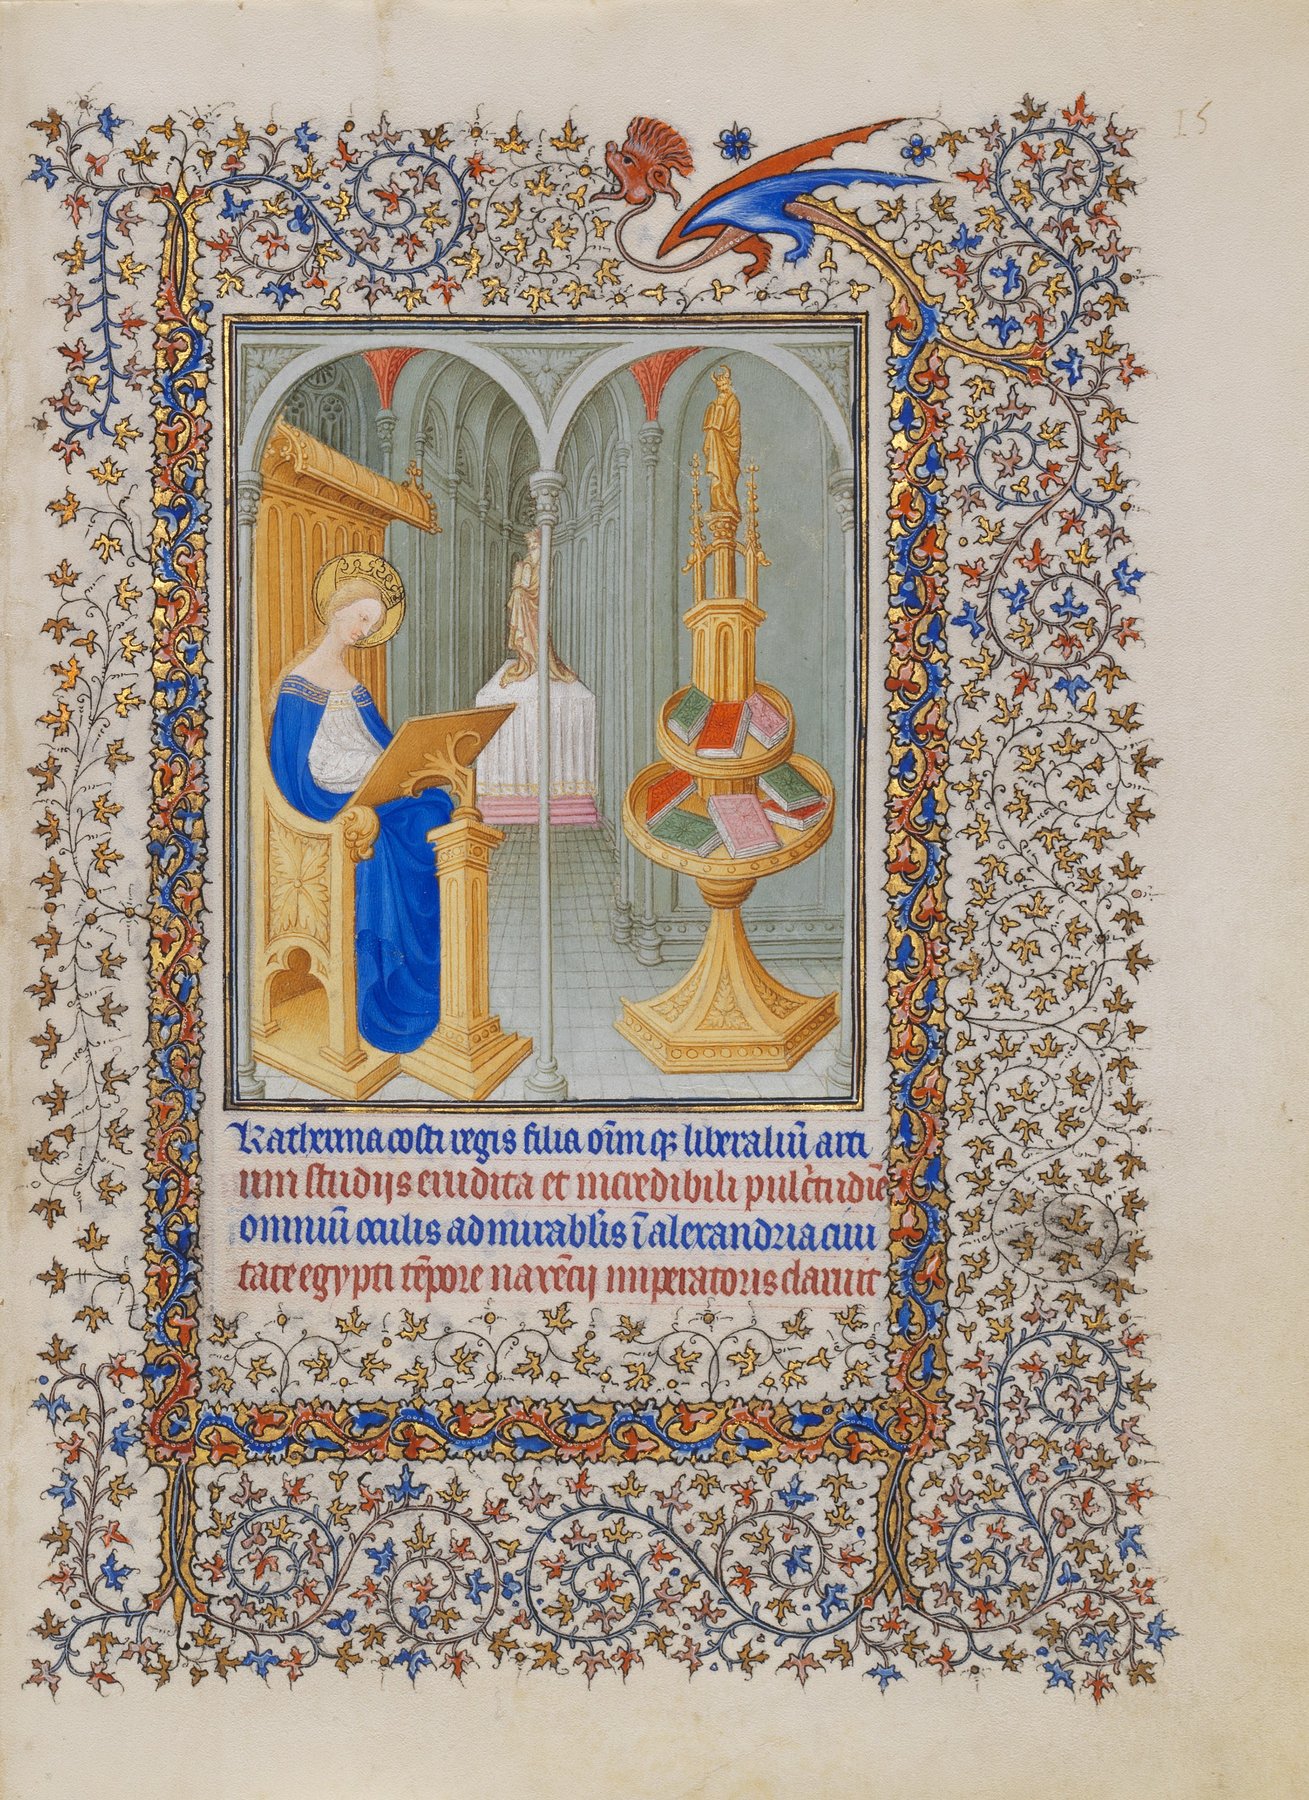 15
Katherina costi regis filia oīm qȝ liberaliū arti
um studijs erudita et incredibili pulc̄tudīe
omniū oculis admirabl̓is ī alexandria ciui
tate egypti tēpore maxēcij imperatoris claruit